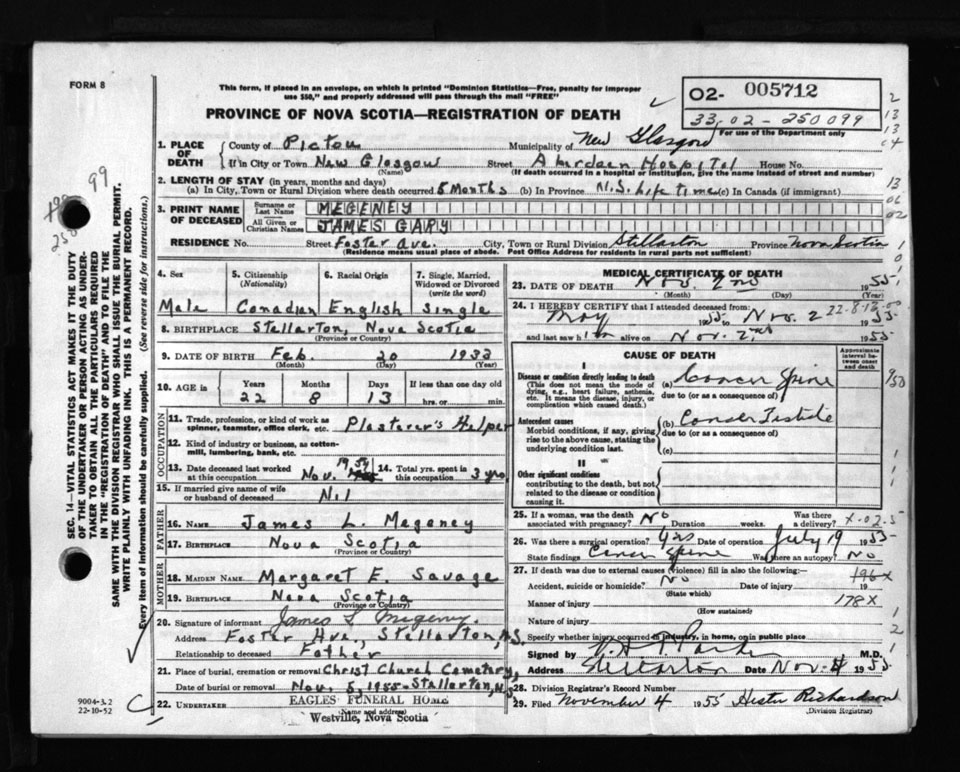 FORM 8
This form, if placed in an envelope, on which is printed "Dominion Statistics—Free, penalty for improper
use $50," and properly addressed will pass through the mail "FREE"
PROVINCE OF NOVA SCOTIA—REGISTRATION OF DEATH
O2- 005712
33-02-250099
For use of the Department only
1. PLACE OF DEATH
County of Pictou Municipality of New Glasgow
If in City or Town New Glasgow Street Aberdeen Hospital House No.
(Name) (If death occurred in a hospital or institution, give the name instead of street and number)
2. LENGTH OF STAY (in years, months and days)
(a) In City, Town or Rural Division where death occurred 5 Months (b) In Province N.S. life time (c) In Canada (if immigrant)
3. PRINT NAME OF DECEASED
Surname or Last Name MEGENEY
All Given or Christian Names JAMES GARY
RESIDENCE No. Street Foster Ave. City, Town or Rural Division Stellarton Province Nova Scotia
(Residence means usual place of abode. Post Office Address for residents in rural parts not sufficient)
4. Sex 5. Citizenship (Nationality) 6. Racial Origin 7. Single, Married, Widowed or Divorced (write the word)
Male Canadian English Single
8. BIRTHPLACE Stellarton, Nova Scotia
(Province or Country)
9. DATE OF BIRTH Feb. 20 1933
(Month) (Day) (Year)
10. AGE in Years Months Days If less than one day old
22 8 13 hrs. or min.
OCCUPATION
11. Trade, profession, or kind of work as spinner, teamster, office clerk, etc. Plasterer's Helper
12. Kind of industry or business, as cotton-mill, lumbering, bank, etc.
13. Date deceased last worked at this occupation Nov. 1954 14. Total yrs. spent in this occupation 3 yrs
15. If married give name of wife or husband of deceased Nil
FATHER
16. NAME James L. Megeney
17. BIRTHPLACE Nova Scotia
(Province or Country)
MOTHER
18. MAIDEN NAME Margaret E. Savage
19. BIRTHPLACE Nova Scotia
(Province or Country)
20. Signature of informant James L. Megeney
Address Foster Ave., Stellarton, N.S.
Relationship to deceased Father
21. Place of burial, cremation or removal Christ Church Cemetery,
Date of burial or removal Nov. 5, 1955 - Stellarton, N.S.
22. UNDERTAKER EAGLES FUNERAL HOME
(Name and address)
Westville, Nova Scotia
MEDICAL CERTIFICATE OF DEATH
23. DATE OF DEATH Nov. 2nd 1955
(Month) (Day) (Year)
22-8-13
24. I HEREBY CERTIFY that I attended deceased from:
May 1955 to Nov. 2 1955
and last saw him alive on Nov. 2nd 1955
CAUSE OF DEATH
Approximate interval between onset and death
I
Disease or condition directly leading to death
(This does not mean the mode of dying, e.g., heart failure, asthenia, etc. It means the disease, injury, or complication which caused death.)
(a) Cancer Spine
due to (or as a consequence of)
Antecedent causes
Morbid conditions, if any, giving rise to the above cause, stating the underlying condition last.
(b) Cancer Testicle
due to (or as a consequence of)
(c)
II
Other significant conditions
contributing to the death, but not related to the disease or condition causing it.
25. If a woman, was the death associated with pregnancy? No Duration weeks. Was there a delivery? X-02-5
26. Was there a surgical operation? Yes Date of operation July 19 1955
State findings Cancer Spine Was there an autopsy? No
27. If death was due to external causes (violence) fill in also the following:
Accident, suicide or homicide? No Date of injury 19
(State which)
196X
Manner of injury 178X
(How sustained)
Nature of injury
Specify whether injury occurred in industry, in home, or in public place
Signed by M.D.
Address Stellarton Date Nov-4 1955
28. Division Registrar's Record Number
29. Filed November 4 1955 Hester Richardson
(Division Registrar)
SEC. 14—VITAL STATISTICS ACT MAKES IT THE DUTY
OF THE UNDERTAKER OR PERSON ACTING AS UNDER-
TAKER TO OBTAIN ALL THE PARTICULARS REQUIRED
IN THE "REGISTRATION OF DEATH" AND TO FILE THE
SAME WITH THE DIVISION REGISTRAR WHO SHALL ISSUE THE BURIAL PERMIT.
WRITE PLAINLY WITH UNFADING INK. THIS IS A PERMANENT RECORD.
Every item of information should be carefully supplied. (See reverse side for instructions.)
99
9004-3.2
22-10-52
C
2
13
13
04
13
06
02
1
0
1
1
2